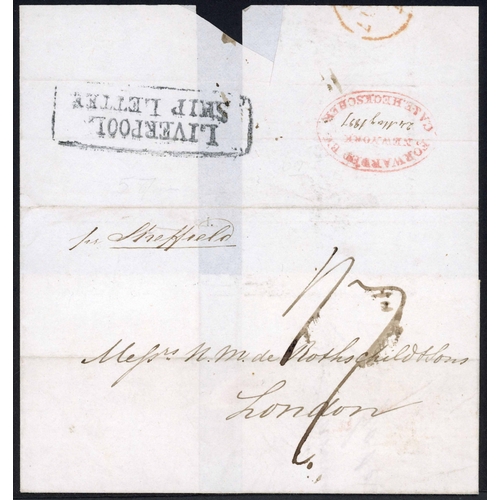 LIVERPOOL
SHIP LETTER
FORWARDED BY
NEW YORK
24 May 1837
CAS. HECKSCHER
pr Sheffield
Messrs N. M. de Rothschild & Sons
London